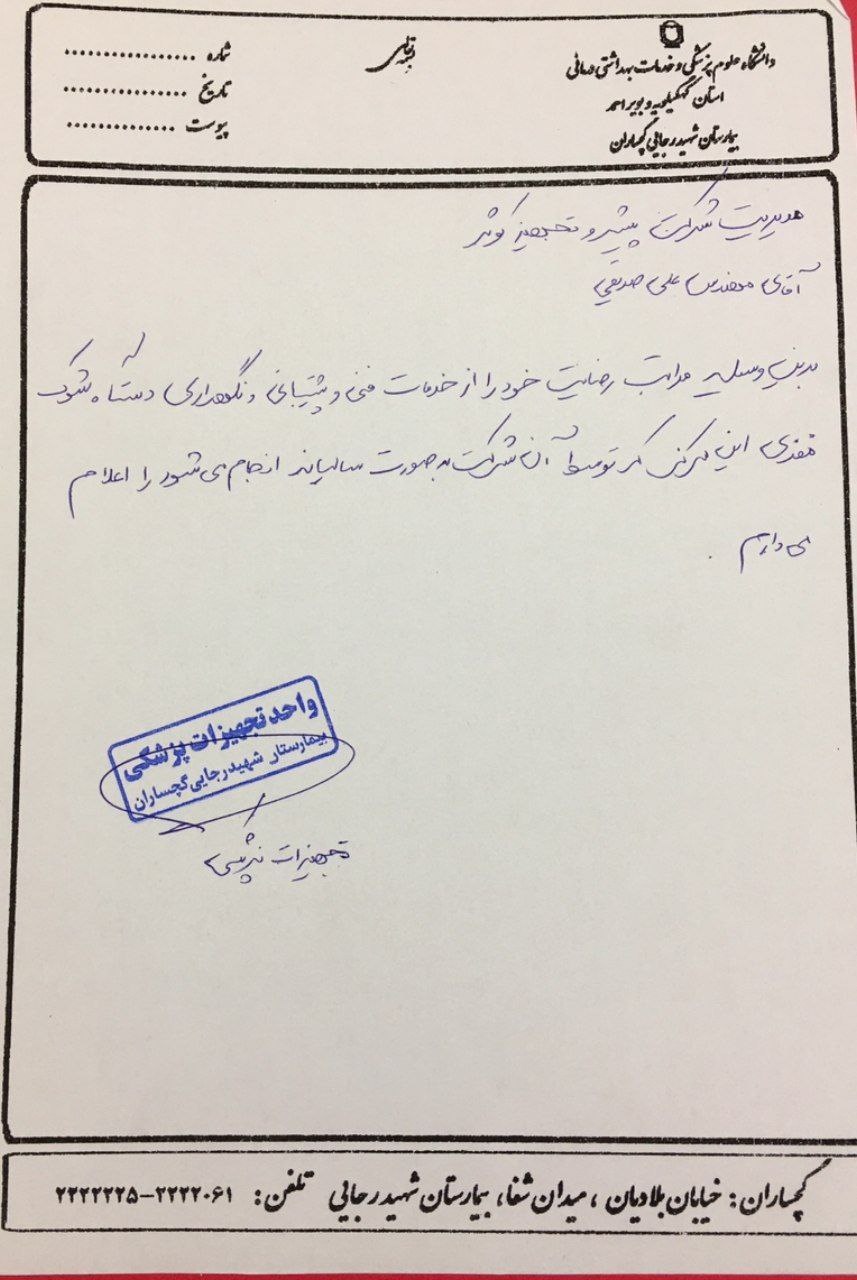 دانشگاه علوم پزشکی و خدمات بهداشتی درمانی
استان کهگیلویه و بویراحمد
بیمارستان شهید رجایی گچساران
بسمه تعالی
شماره ................
تاریخ ................
پیوست ..............
مدیریت شرکت پیشرو تجهیز کوثر
آقای مهندس علی صدیقی
بدین وسیله مراتب رضایت خود را از خدمات فنی و پشتیبانی و نگهداری دستگاه شوک
مغزی این مرکز که توسط آن شرکت به صورت سالیانه انجام می شود را اعلام
می دارم .
واحد تجهیزات پزشکی
بیمارستان شهید رجایی گچساران
تجهیزات پزشکی
گچساران : خیابان بلادیان ، میدان شفا ، بیمارستان شهید رجایی تلفن : ۲۲۲۲۰۶۱-۲۲۲۲۲۲۵